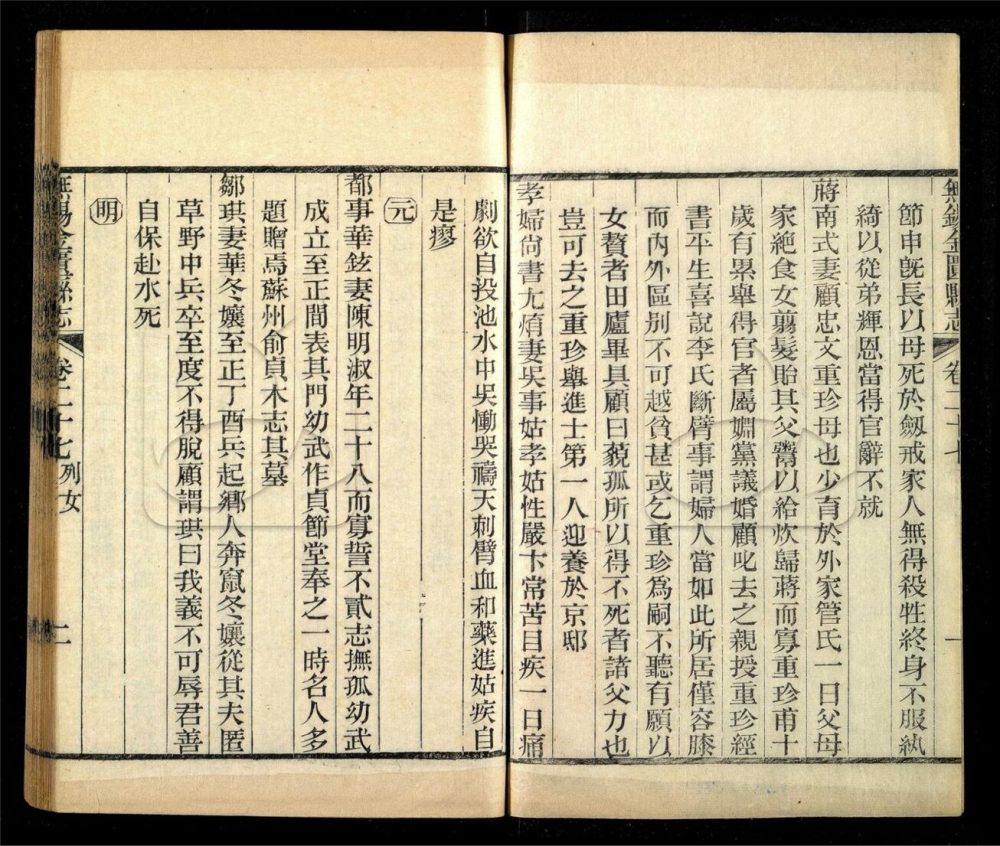 無錫金匱縣志 卷二十七 一
節申旣長以母死於劔戒家人無得殺牲終身不服紈
綺以從弟輝恩當得官辭不就
蔣南式妻顧忠文重珍母也少育於外家管氏一日父母
家絶食女翦髮貽其父鬻以給炊歸蔣而寡重珍甫十
歲有累舉得官者屬婣黨議婚顧叱去之親授重珍經
書平生喜說李氏斷臂事謂婦人當如此所居僅容膝
而內外區別不可越貧甚或乞重珍爲嗣不聽有願以
女贅者田廬畢具顧曰藐孤所以得不死者諸父力也
豈可去之重珍舉進士第一人迎養於京邸
孝婦尙書尤焴妻吳事姑孝姑性嚴卞常苦目疾一日痛
劇欲自投池水中吳慟哭禱天刺臂血和藥進姑疾自
是瘳
元
都事華鉉妻陳明淑年二十八而寡誓不貳志撫孤幼武
成立至正間表其門幼武作貞節堂奉之一時名人多
題贈焉蘇州俞貞木志其墓
鄒珙妻華冬孃至正丁酉兵起鄕人奔竄冬孃從其夫匿
草野中兵卒至度不得脫顧謂珙曰我義不可辱君善
自保赴水死
明
無錫金匱縣志 卷二十七 列女 二